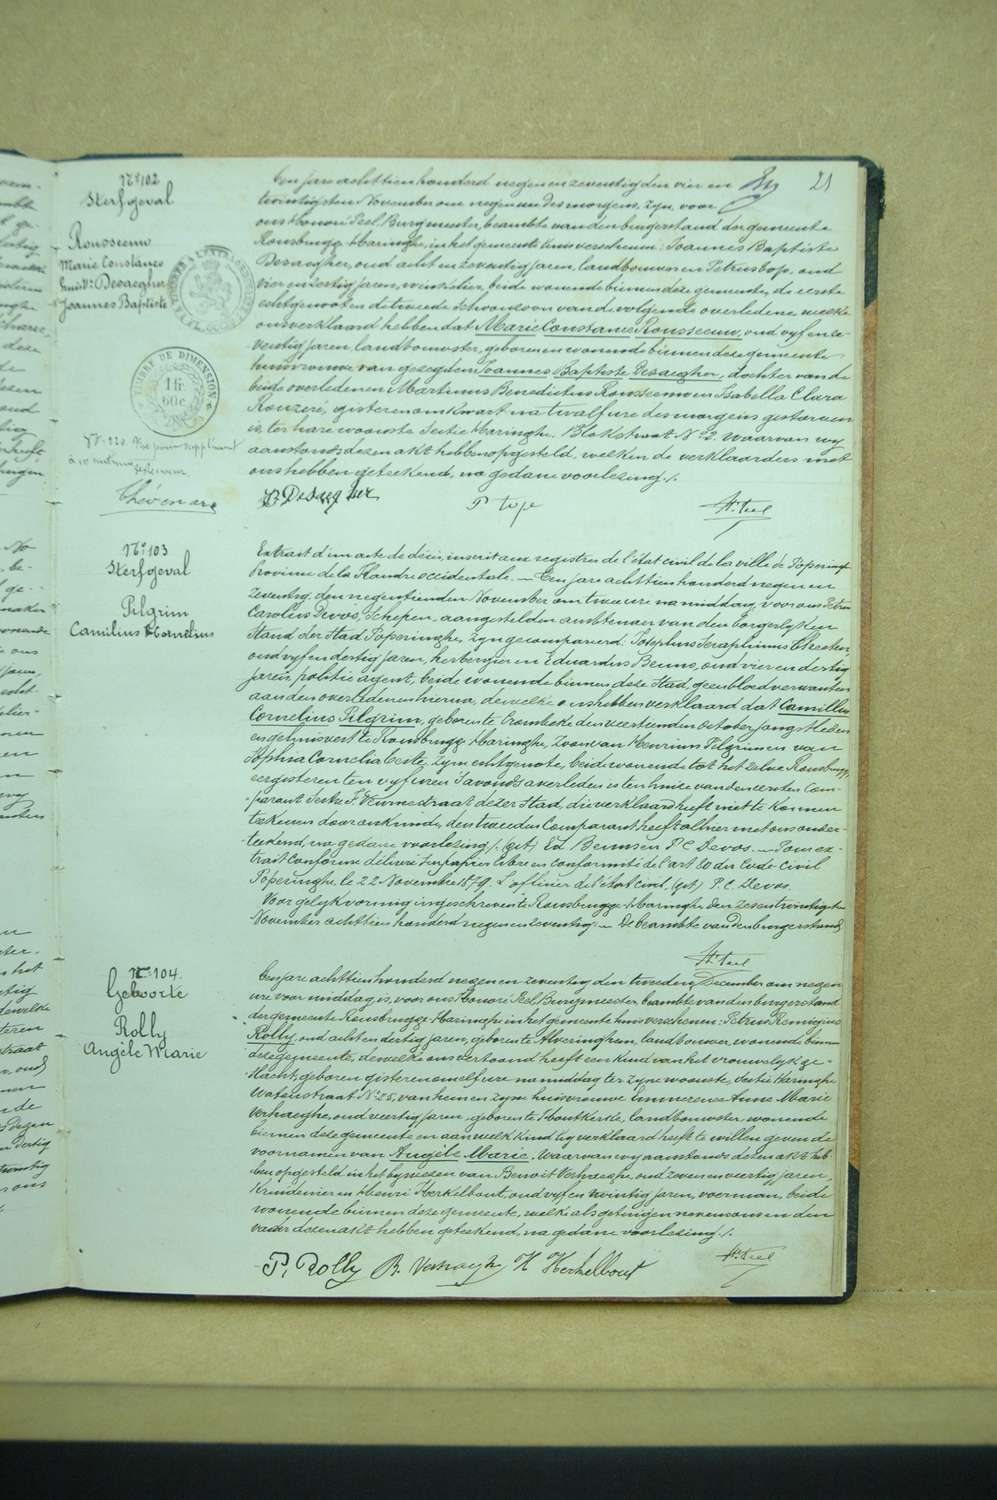 21
N° 102
Sterfgeval
Rousseeuw
Marie Constance
huisv: Desaegher
Joannes Baptiste
TIMBRE DE DIMENSION
1 fr.
60c.
Een jare achttien honderd negen en zeventig den vier en
twintigsten November om negen uren des morgens, zijn voor
ons Honoré Peel, Burgmeester, beambte van den burgerstand der gemeente
Rousbrugge-Haringhe, in het gemeente huis verschenen: Joannes Baptiste
Desaegher, oud acht en zeventig jaren, landbouwer en Petrus Top, oud
vier en zestig jaren, beide wonende binnen deze gemeente, de eerste
echtgenoot en de tweede schoonzoon van de volgende overledene welke
ons verklaard hebben dat Marie Constance Rousseeuw, oud vyf en ze-
ventig jaren, landbouwster, geboren en wonende binnen deze gemeente
huisvrouwe van gezegden Joannes Baptiste Desaegher, dochter van de
beide overledenen Martinus Benedictus Rousseeuw en Isabella Clara
Rouzeré, gisteren om kwart na twalf ure des morgens gestorven
is, ter hare woonste Sectie Haringhe, Blokstraat N° 2. waarvan wy
aanstonds dezen akt hebben opgesteld, welken de verklaarders met
ons hebben geteekend, na gedane voorlezing /.
N° 120 Visé pour supplément
Thévenare
J B Desaegher
P top
H. Peel
N° 103
Sterfgeval
Pilgrim
Camilius Cornelius
Extrait d'un acte de décès, inscrit aux registres de l'état civil de la ville de Poperinghe
Province de la Flandre occidentale. — Een jare achttien honderd negen en
zeventig, den negentienden November om twee ure namiddag, voor ons Petrus
Carolus Devos, Schepen, aangestelden ambtenaer van den Borgerlyken
Stand der Stad Poperinghe, zyn gecompareerd: Josephus Seraphinus
oud vyf en dertig jaren, herbergier en Eduardus Beuns, oud vier en dertig
jaren, politie agent, beide wonende binnen deze Stad, geen bloedverwanten
aan den overledenen hierna, dewelke ons hebben verklaard dat Camillus
Cornelius Pilgrim, geboren te Crombeke den veertienden October jongstleden
en gehuisvest te Rousbrugge-Haringhe, Zoon van Henricus Pilgrim en van
Sophia Cornelia Ceste, zijne echtgenote, beide wonende tot het zelve Rousbrugge,
eergisteren ten vyf uren 's avonds overleden is ten huize van den eersten Com-
parant Sectie F. Veurnestraat dezer Stad, die verklaard heeft niet te konnen
teekenen door onkunde, den tweeden Comparant heeft alhier met ons onder-
teekend, na gedane voorlezing /. (get) Ed Beuns en P C Devos. — Pour ex-
trait conforme délivré sur papier libre en conformité de l'art 80 du Code civil
Poperinghe, le 22 Novembre 1879. L'officier de l'état civil, (get) P. C. Devos.
Voor gelykvormig ingeschreven te Rousbrugge-Haringhe den zes en twintigsten
November achttien honderd negen en zeventig — De beambte van den burgerstand,
H. Peel
N° 104
Geboorte
Rolly
Angèle Marie
Een jare achttien honderd negen en zeventig den tweeden December om negen
ure voormiddag is, voor ons Honoré Peel, Burgmeester, beambte van den burgerstand
der gemeente Rousbrugge-Haringhe in het gemeente huis verschenen: Petrus Remigius
Rolly, oud acht en dertig jaren, geboren te Alveringhem, landbouwer, wonende binnen
deze gemeente, dewelke ons vertoond heeft een kind van het vrouwelyk ge-
slacht, geboren gisteren om elf ure namiddag ter zyne woonste, Sectie Haringhe
Waterstraat N° 25, van hem en zyne huisvrouwe Emmerence Anne Marie
Verhaeghe, oud veertig jaren, geboren te Houtkerke, landbouwster, wonende
binnen deze gemeente en aan welk kind hy verklaard heeft te willen geven de
voornamen van Angèle Marie. Waarvan wy aanstonds dezen akt heb-
ben opgesteld in het bywezen van Benoit Verhaeghe, oud zeven en veertig jaren,
Kruidenier en Henri Herkelbout, oud vyf en twintig jaren, voerman, beide
wonende binnen deze gemeente, welke als getuigen nevens ons en den
vader dezen akt hebben geteekend, na gedane voorlezing /.
P. Rolly B. Verhaeghe H Herkelbout
H. Peel